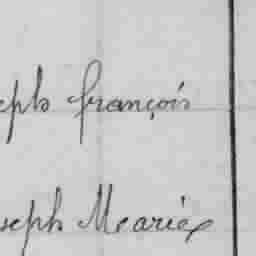 eph françois
seph Marie